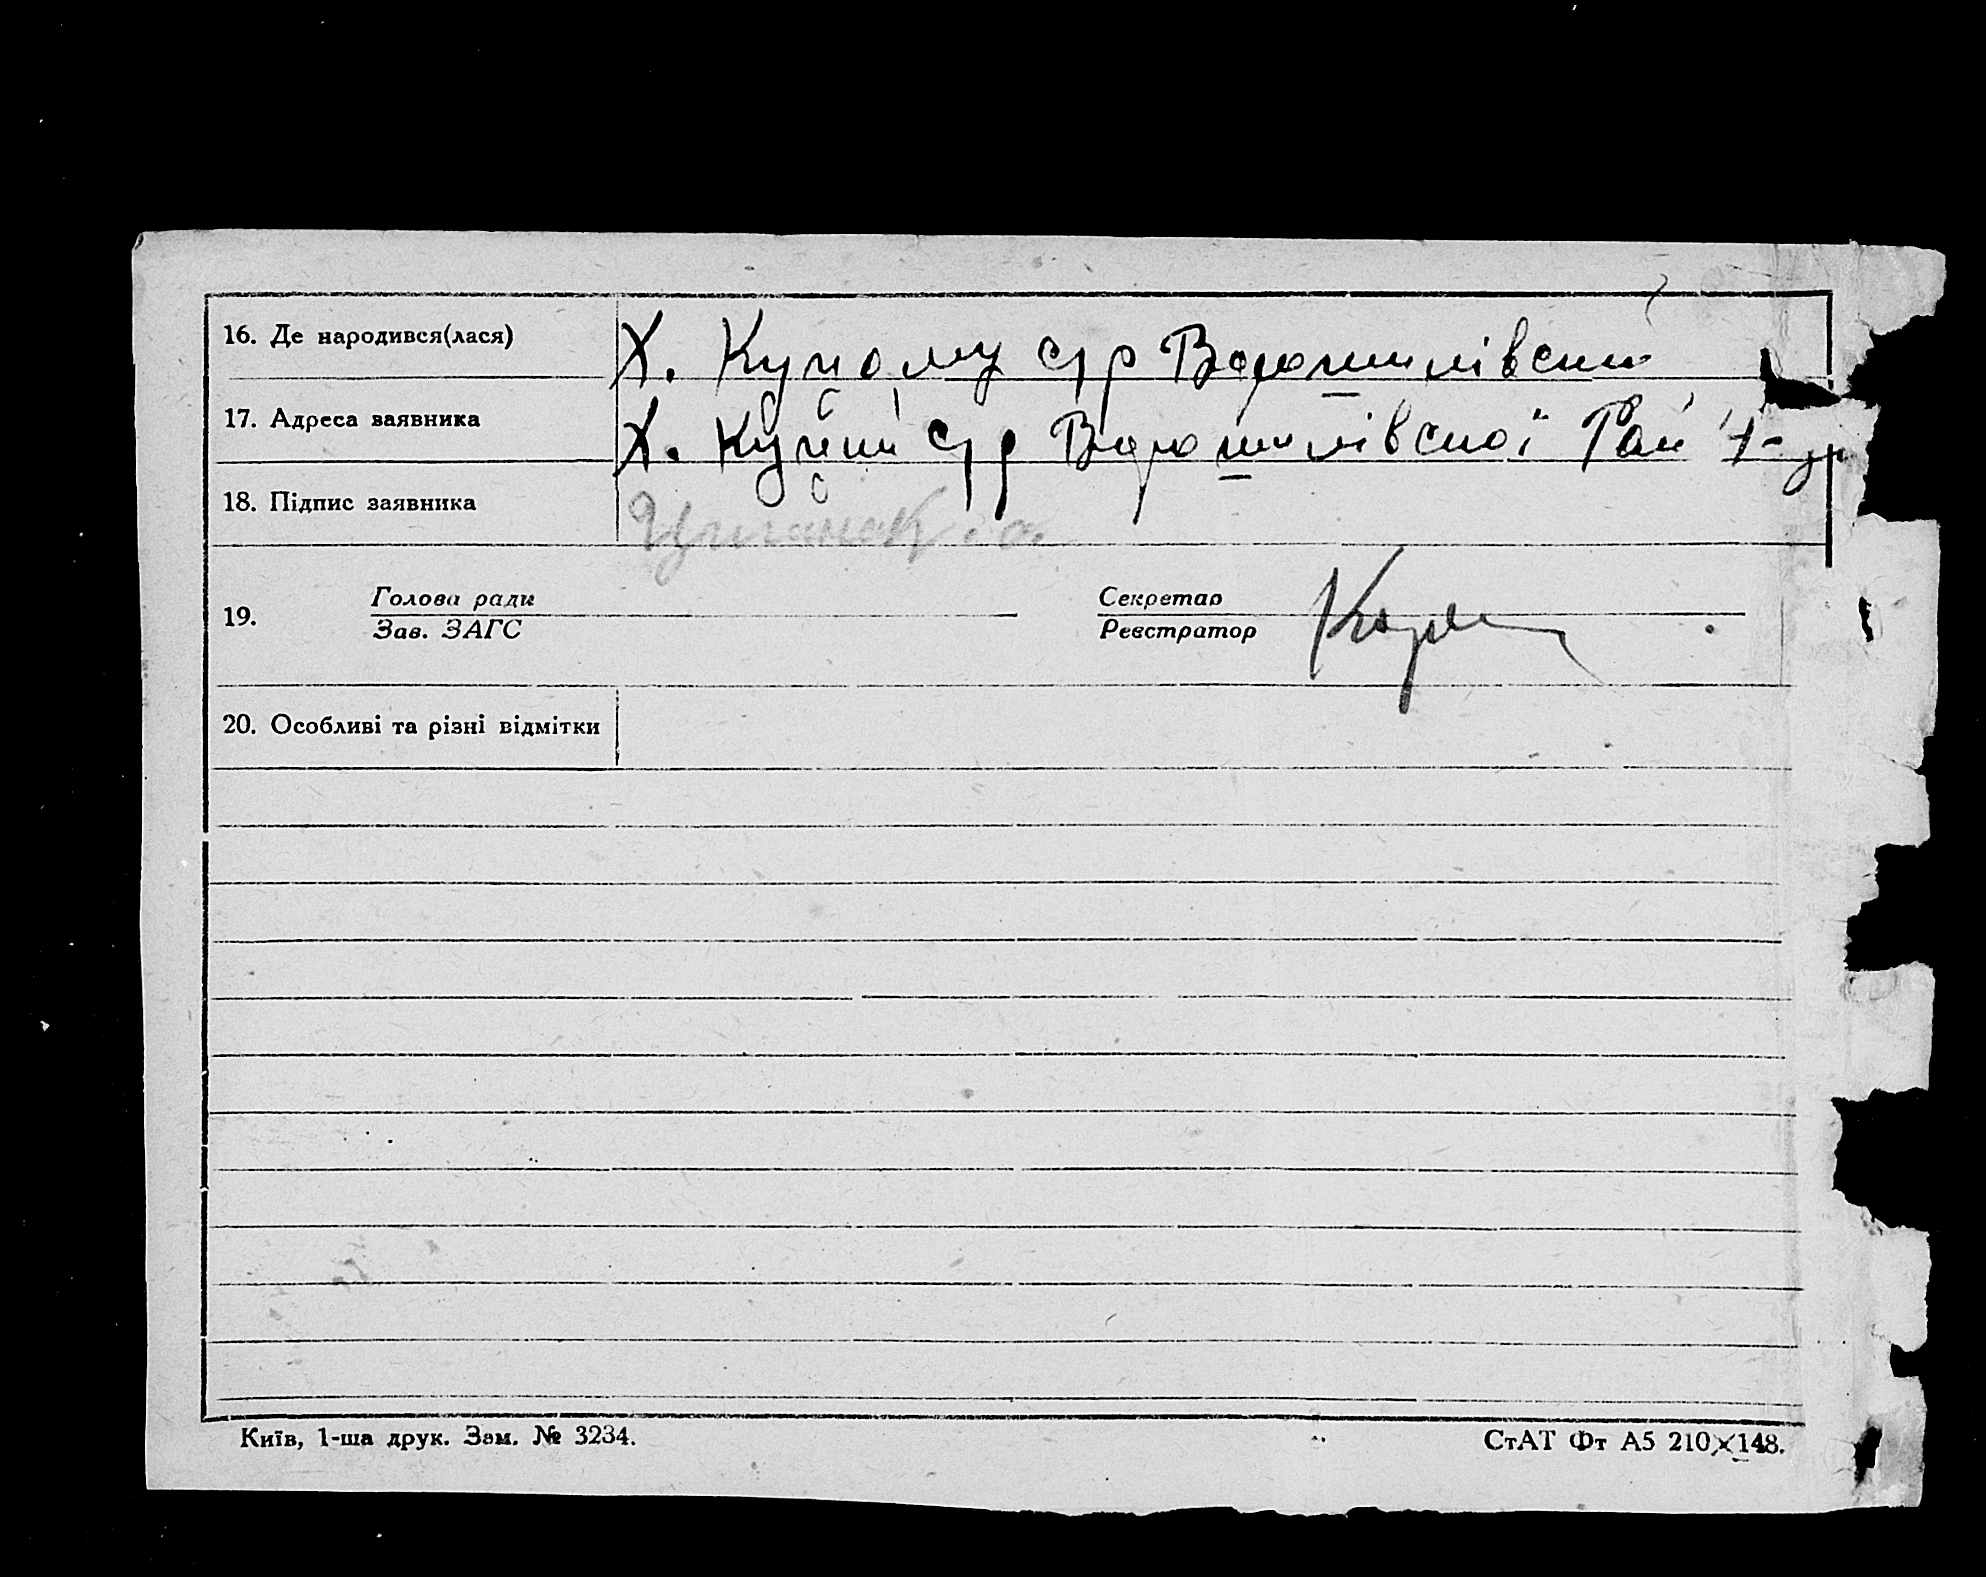 16. Де народився(лася) Х. Куному с/р Ворошилівськ
17. Адреса заявника Х. с/р Ворошилівської Рай
18. Підпис заявника
19. Голова ради Секретар
Зав. ЗАГС Реєстратор
20. Особливі та різні відмітки
Київ, 1-ша друк. Зам. № 3234. СтАТ Фт А5 210×148.